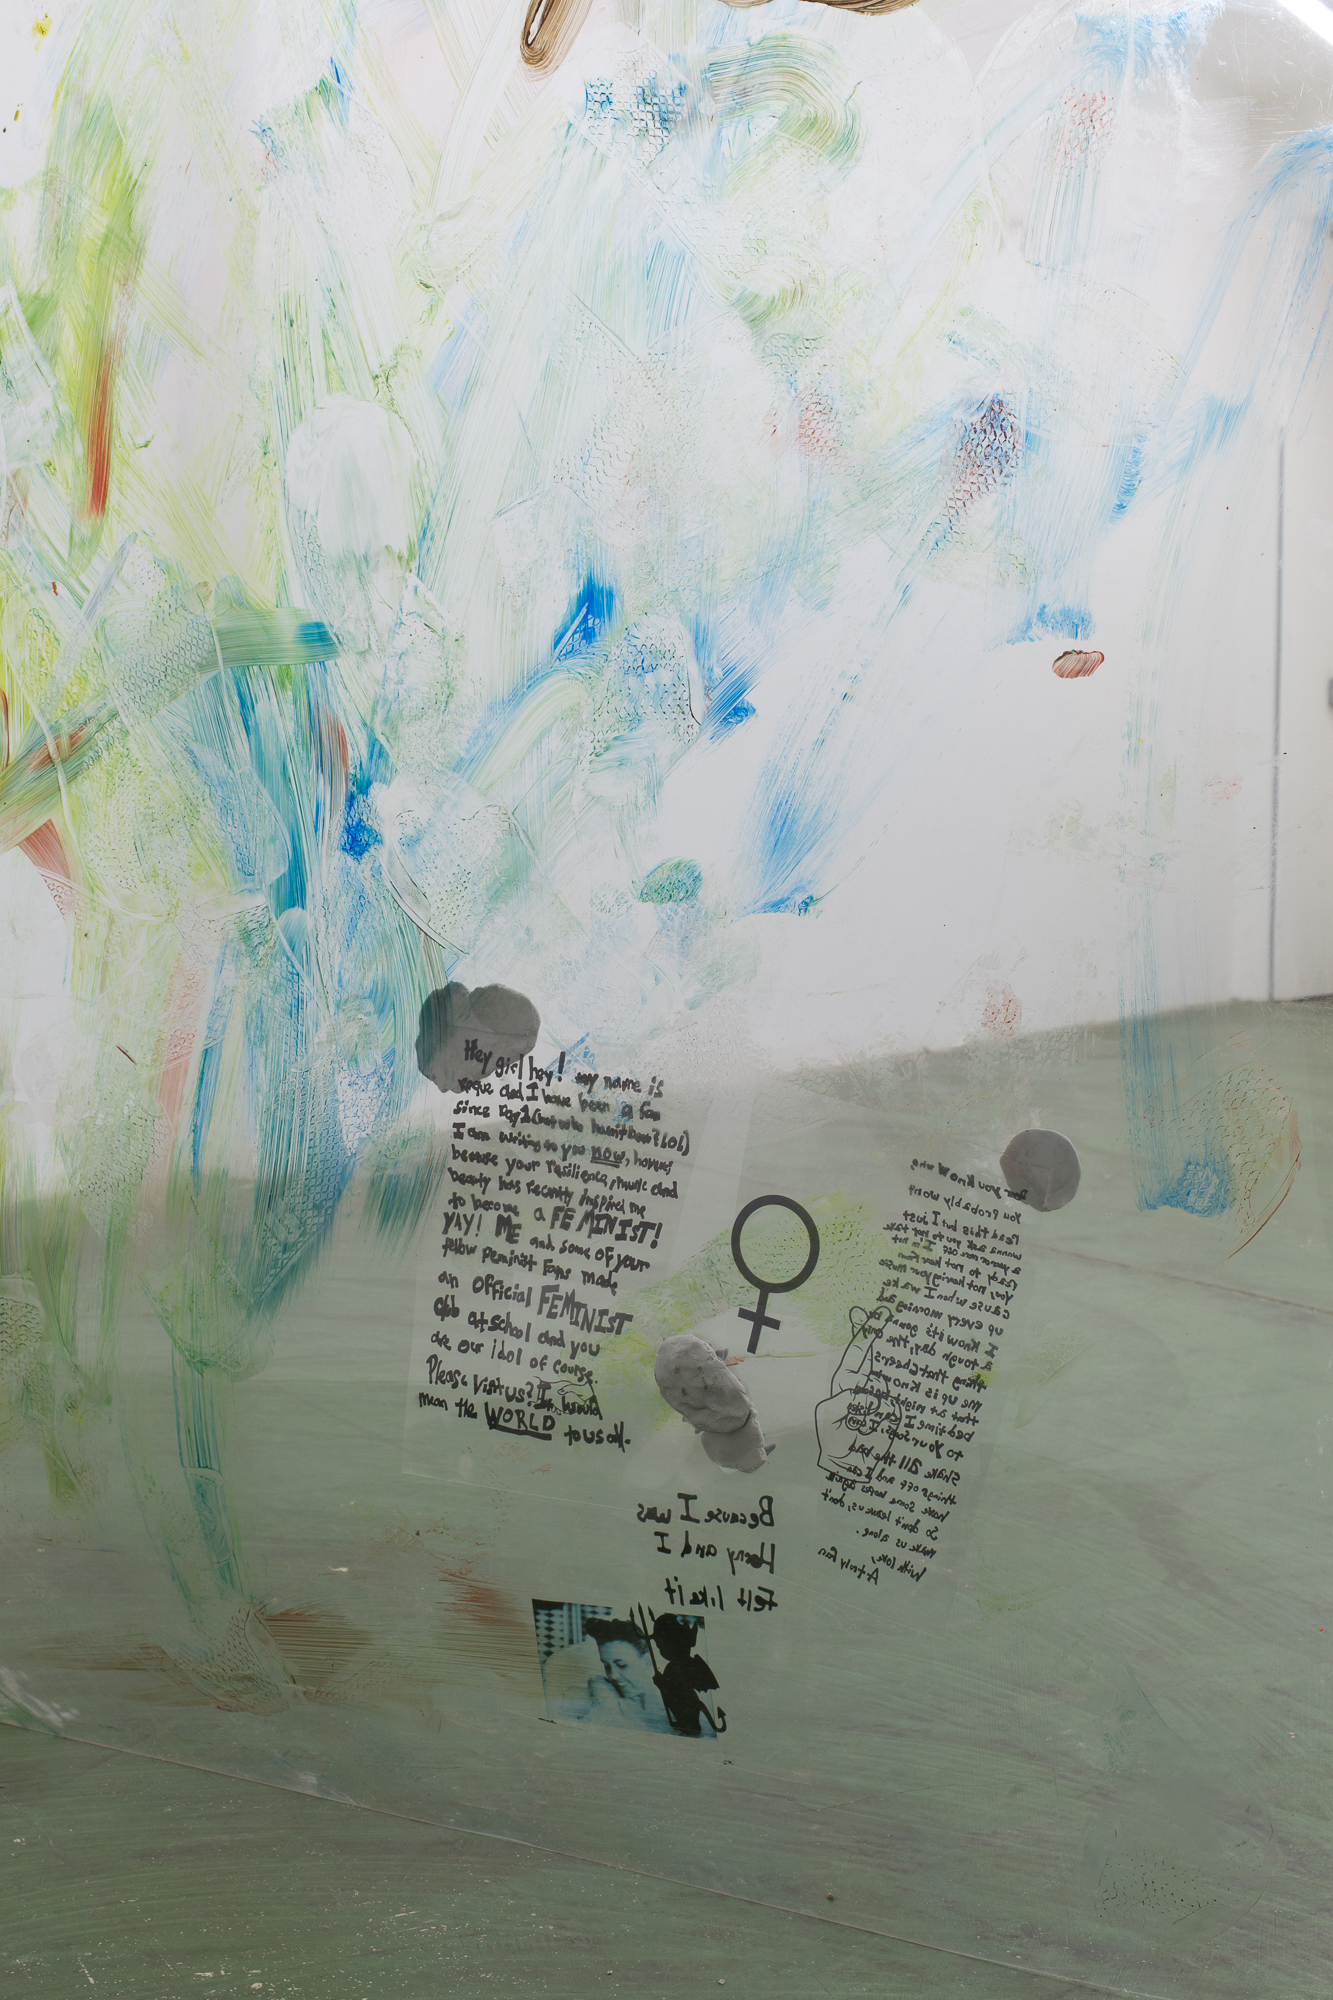 Hey girl hey! my name is
and I have been a fan
since Day 1 (but who hasn't been? lol)
I am writing to you now, however,
because your resilience, music and
beauty has recently inspired me
to become a FEMINIST!
YAY! ME and some of your
fellow feminist fans made
an official FEMINIST
club at school and you
are our idol of course.
Please visit us? It would
mean the WORLD to us all.
Dear you know who,
You Probably won't
read this but I just
wanna ask you to not take
a year or more off. I'm not
ready to not hear from
you, not having your music
cause when I wake
up every morning and
I know it's gonna be
a tough day, the only
thing that cheers
me up is knowing
that at night before
bedtime I can listen
to your songs, I can
shake all the bad
things off and I can
have some hope again.
So don't leave us, don't
make us alone.
With love,
A truly fan
Because I was
Horny and I
Felt like it